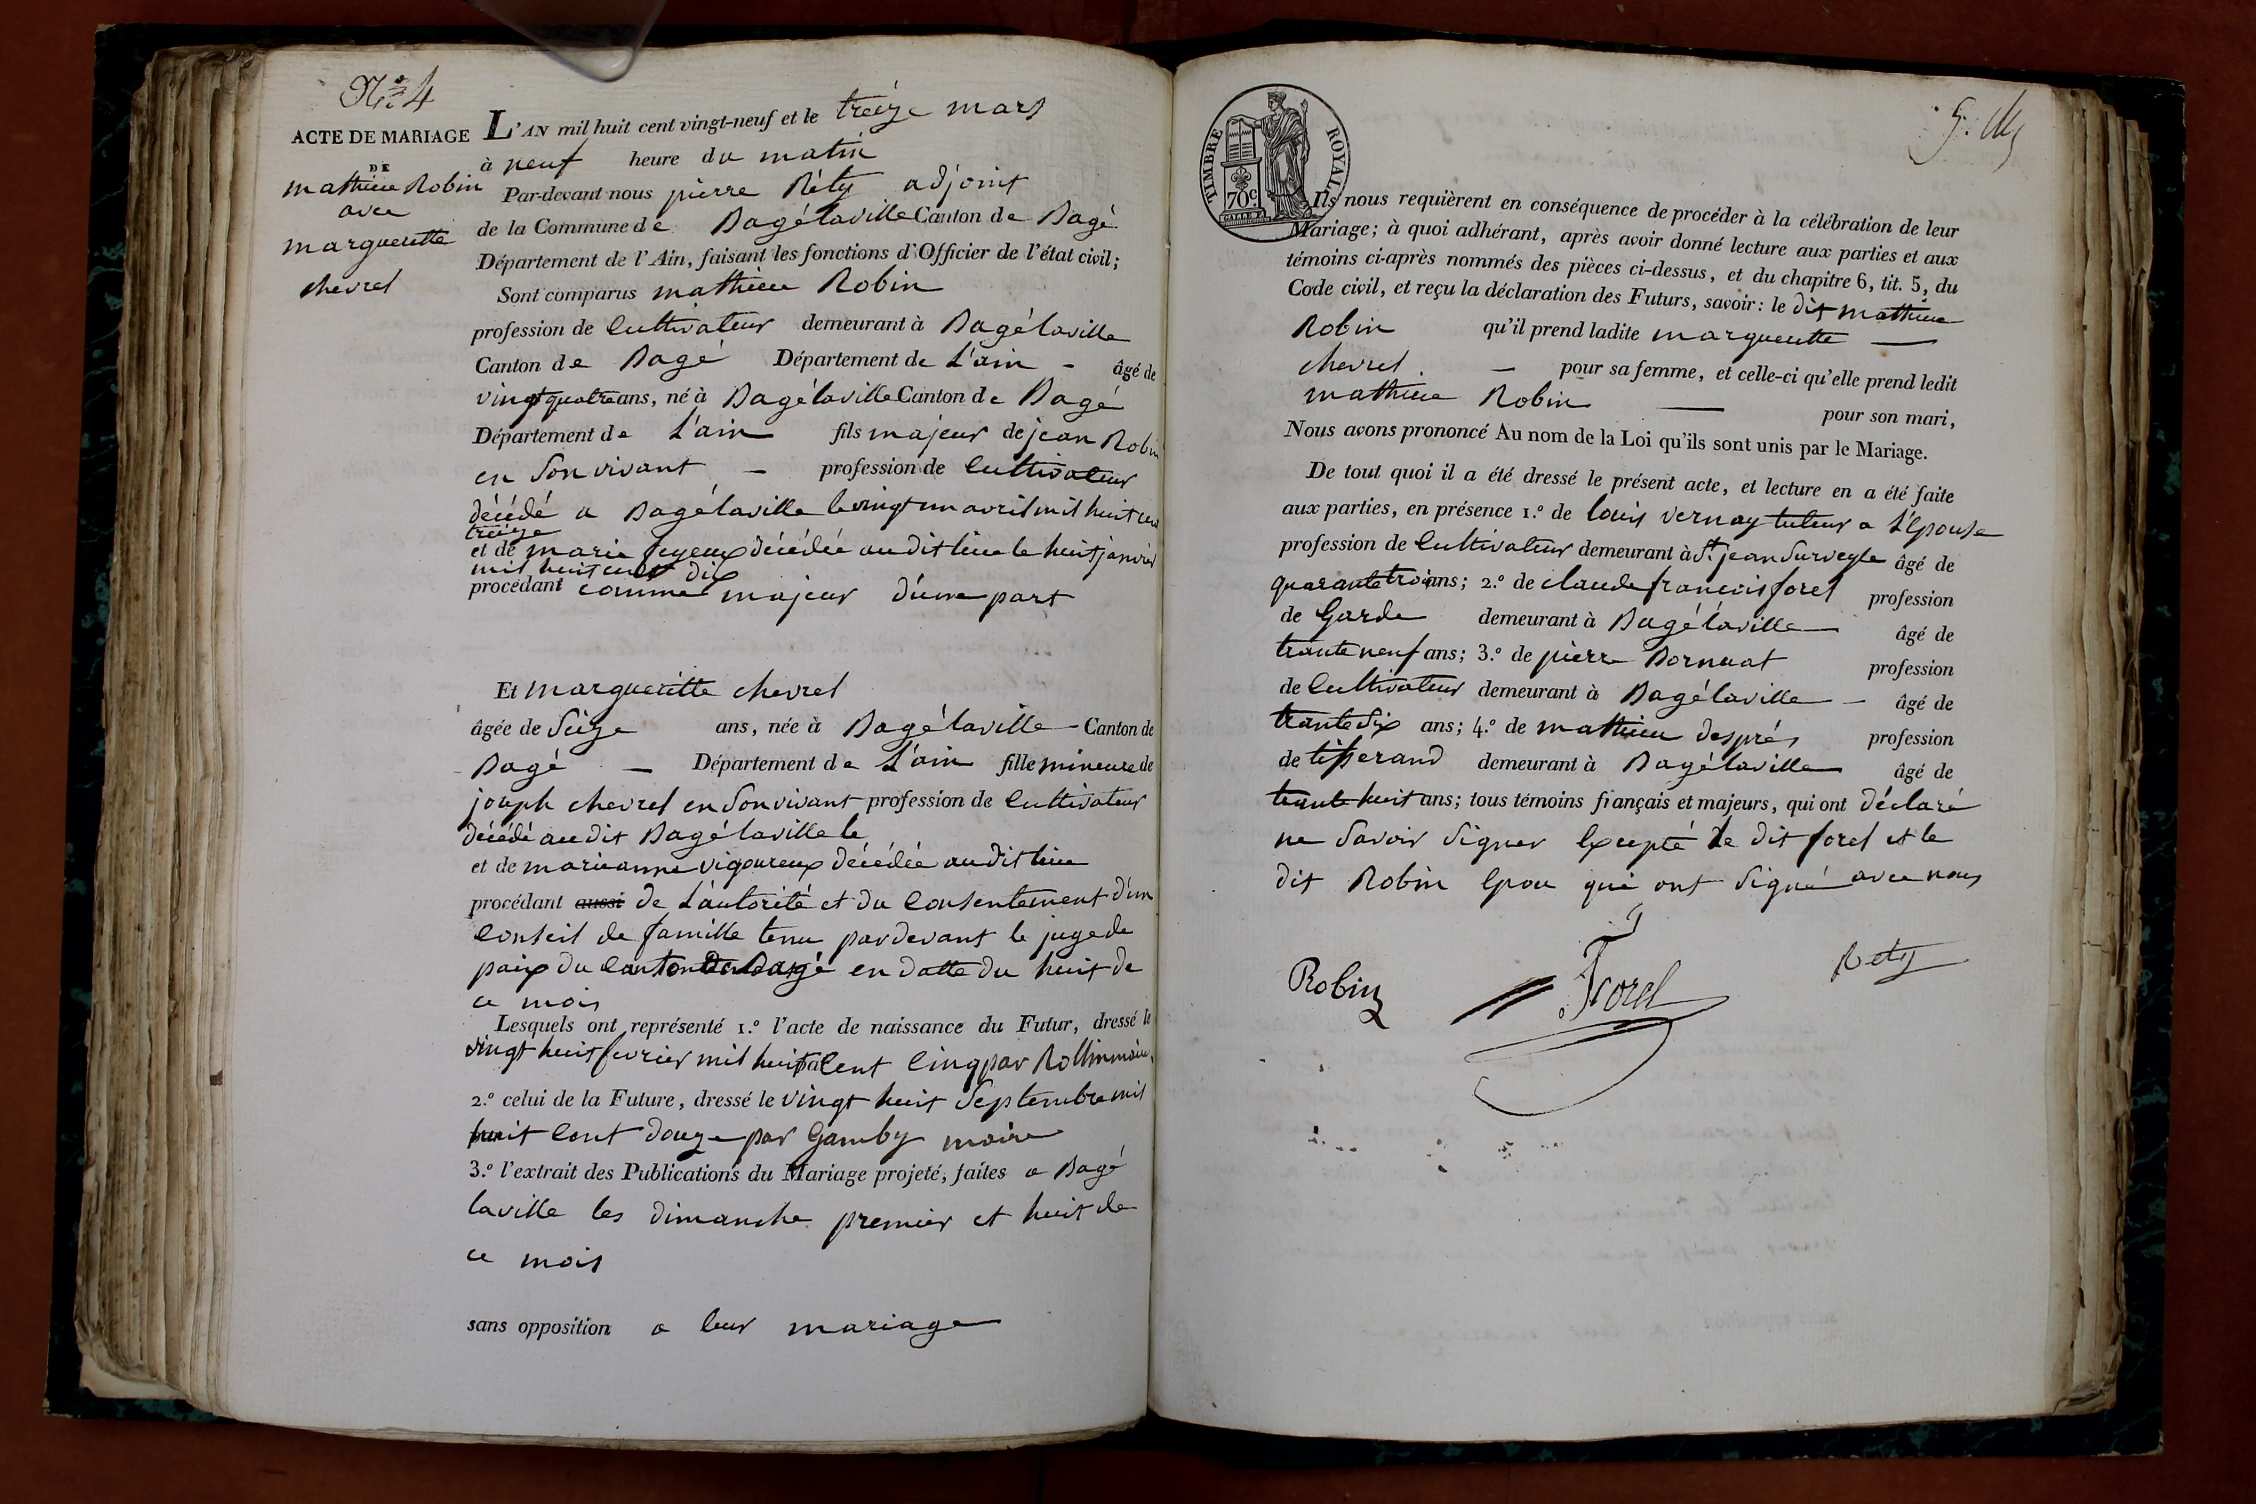 N° 4
ACTE DE MARIAGE
DE
mathieu Robin
avec
margueritte
chevrel
L'AN mil huit cent vingt-neuf et le treize mars
à neuf heure du matin
Par-devant nous pierre Réty adjoint
de la Commune de Bagélaville Canton de Bagé
Département de l'Ain, faisant les fonctions d'Officier de l'état civil;
Sont comparus mathieu Robin
profession de Cultivateur demeurant à Bagélaville
Canton de Bagé Département de L'ain - âgé de
vingt quatre ans, né à Bagélaville Canton de Bagé
Département de L'ain fils majeur de jean Robin
en Son vivant - profession de Cultivateur
décédé a Bagélaville le vingt un avril mil huit cent
treize
et de marie feyeux décédée audit lieu le huit janvier
mil huit cent dix
procédant comme majeur d'une part
Et margueritte chevrel
âgée de Seize ans, née à Bagélaville - Canton de
Bagé - Département de L'ain fille mineure de
joseph chevrel en Son vivant profession de Cultivateur
décédé audit Bagélaville le
et de marieanne vigoureux décédée audit lieu
procédant aussi de L'autorité et du Consentement d'un
Conseil de famille tenu pardevant le juge de
paix du Canton de Bagé en datte du huit de
ce mois
Lesquels ont représenté 1.° l'acte de naissance du Futur, dressé le
vingt huit fevrier mil huit Cent Cinq par Rollin maire
2.° celui de la Future, dressé le vingt huit Septembre mil
huit Cent douze par Gamby maire
3.° l'extrait des Publications du Mariage projeté, faites a Bagé
laville les dimanche premier et huit de
ce mois
sans opposition a leur mariage
TIMBRE ROYAL
70c.
Ils nous requièrent en conséquence de procéder à la célébration de leur
Mariage; à quoi adhérant, après avoir donné lecture aux parties et aux
témoins ci-après nommés des pièces ci-dessus, et du chapitre 6, tit. 5, du
Code civil, et reçu la déclaration des Futurs, savoir: le dit mathieu
Robin qu'il prend ladite margueritte -
chevrel - pour sa femme, et celle-ci qu'elle prend ledit
mathieu Robin - pour son mari,
Nous avons prononcé Au nom de la Loi qu'ils sont unis par le Mariage.
De tout quoi il a été dressé le présent acte, et lecture en a été faite
aux parties, en présence 1.° de louis vernay tuteur a L'Epouse
profession de Cultivateur demeurant à St jean Surveyle âgé de
quarante trois ans; 2.° de claude francois forel profession
de Garde demeurant à Bagélaville âgé de
trante neuf ans; 3.° de pierre Bornuat profession
de Cultivateur demeurant à Bagélaville - âgé de
trante Six ans; 4.° de mathieu després profession
de tisserand demeurant à Bagélaville âgé de
trante huit ans; tous témoins français et majeurs, qui ont déclaré
ne Savoir Signer Excepté le dit forel et le
dit Robin Epou qui ont Signé avec nous
Robin Forel Rety